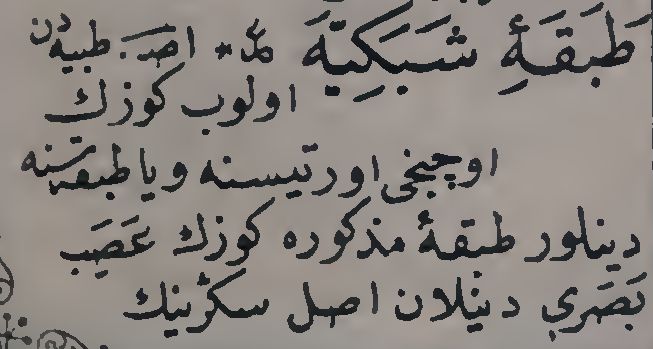 طَبَقَۀِ شَبَكِيَّه مذ* اصـ. طبيه دن
اولوب كوزك
اوچنجی اورتيسنه ويا طبقه سنه
دينلور طبقۀ مذكوره كوزك عَصَبِ
بَصَرِي دينلان اصل سكرينك